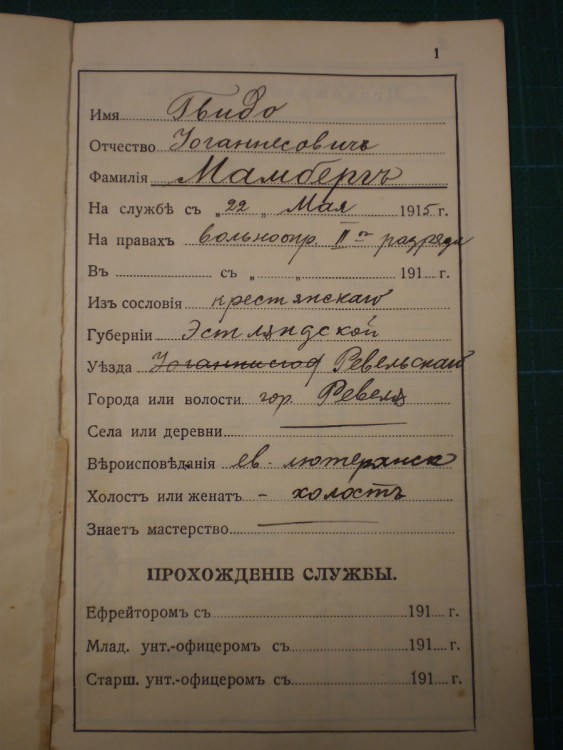 1
Имя Гвидо
Отчество Іоганнесовичъ
Фамилія Мамбергъ
На службѣ съ „ 22 „ Мая 1915 г.
На правахъ вольноопр. II го разряда
Въ ............ съ „ „ 191.... г.
Изъ сословія крестянскаго
Губерніи Эстляндской
Уѣзда Ревельскаго
Города или волости гор. Ревель
Села или деревни
Вѣроисповѣданія ев. лютеранск
Холостъ или женатъ - холостъ
Знаетъ мастерство
ПРОХОЖДЕНІЕ СЛУЖБЫ.
Ефрейторомъ съ 191.... г.
Млад. унт.-офицеромъ съ 191.... г.
Старш. унт.-офицеромъ съ 191.... г.